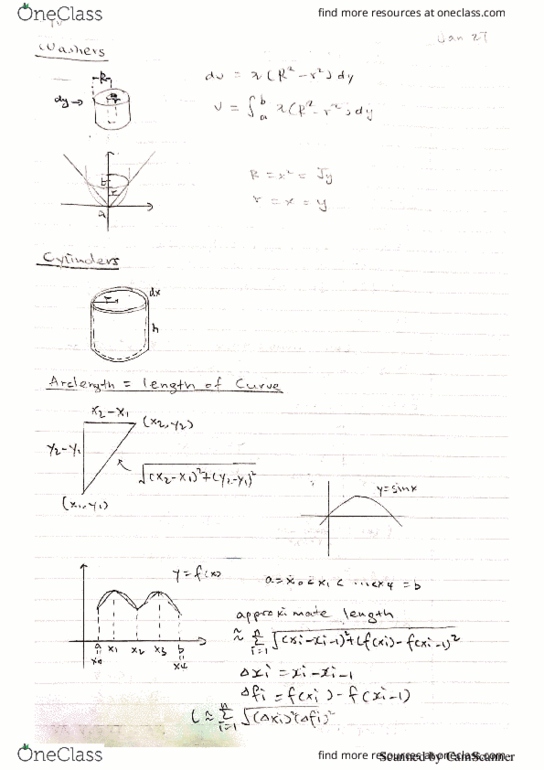 OneClass
find more resources at oneclass.com
Jan 27
Washers
R
dy →
dv = π(R² - r²)dy
v = ∫ₐᵇ π(R² - r²)dy
R = x² = √y
r = x = y
Cylinders
r
dx
h
Arclength = length of Curve
x₂-x₁
(x₂, y₂)
y₂-y₁
√(x₂-x₁)²+(y₂-y₁)²
(x₁, y₁)
y=sinx
y = f(x)
a = x₀ < x₁ < ... < x₄ = b
approximate length
≈ Σⁿᵢ₌₁ √(xi-xi-1)²+(f(xi)-f(xi-1)²
a x₁ x₂ x₃ b
x₀ x₄
Δxi = xi-xi-1
Δfi = f(xi) - f(xi-1)
L ≈ Σⁿᵢ₌₁ √(Δxi)²(Δfi)²
OneClass
find more resources at oneclass.com
Scanned by CamScanner